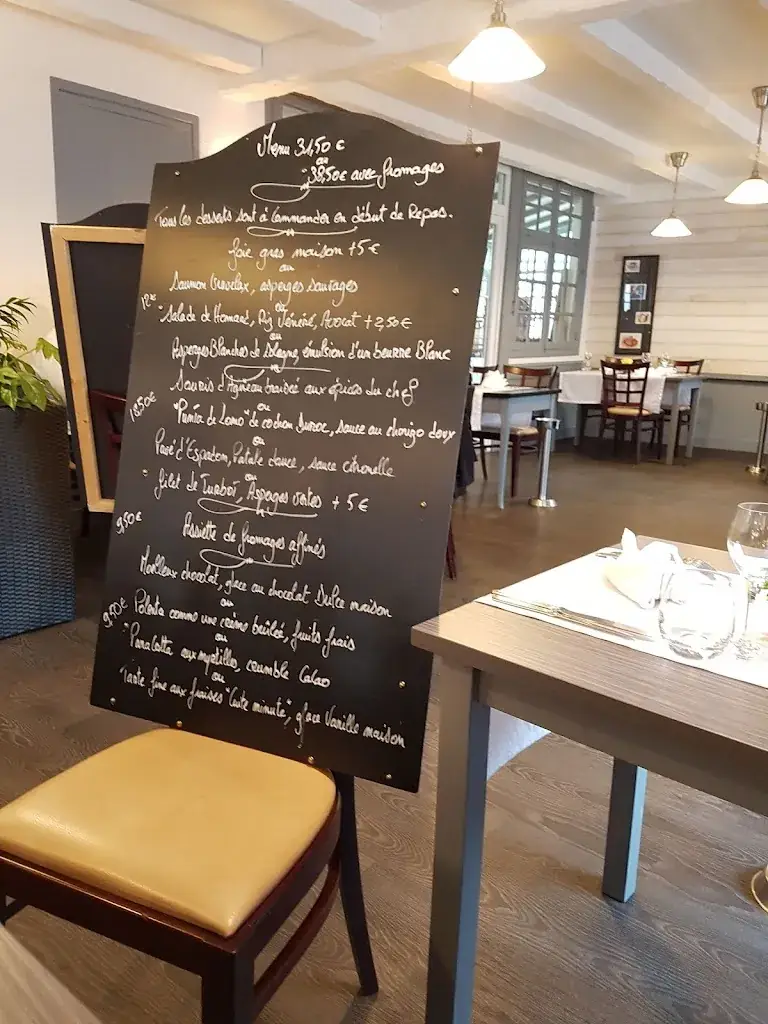 Menu 31,50 €
ou
38,50€ avec fromages
Tous les desserts sont à Commander en début de Repas.
foie gras maison +5€
ou
Saumon Gravelax, asperges sauvages
ou
12€ Salade de Homard, Riz Vénéré, Avocat +2,50€
ou
Asperges Blanches de Sologne, émulsion d'un beurre Blanc
Souris d'Agneau braisée aux épices du chef
ou
18,50€ "Pluma de Lomo" de cochon Duroc, sauce au chorizo doux
ou
Pavé d'Espadon, Patate douce, sauce citronelle
ou
filet de Turbot, Asperges vertes + 5€
9,50€ Assiette de fromages affinés
Moelleux chocolat, glace au chocolat Dulce maison
ou
9,50€ Polenta comme une crème brûlée, fruits frais
ou
Panacotta aux myrtilles, crumble Cacao
ou
Tarte fine aux fraises "Cuite minute", glace Vanille maison